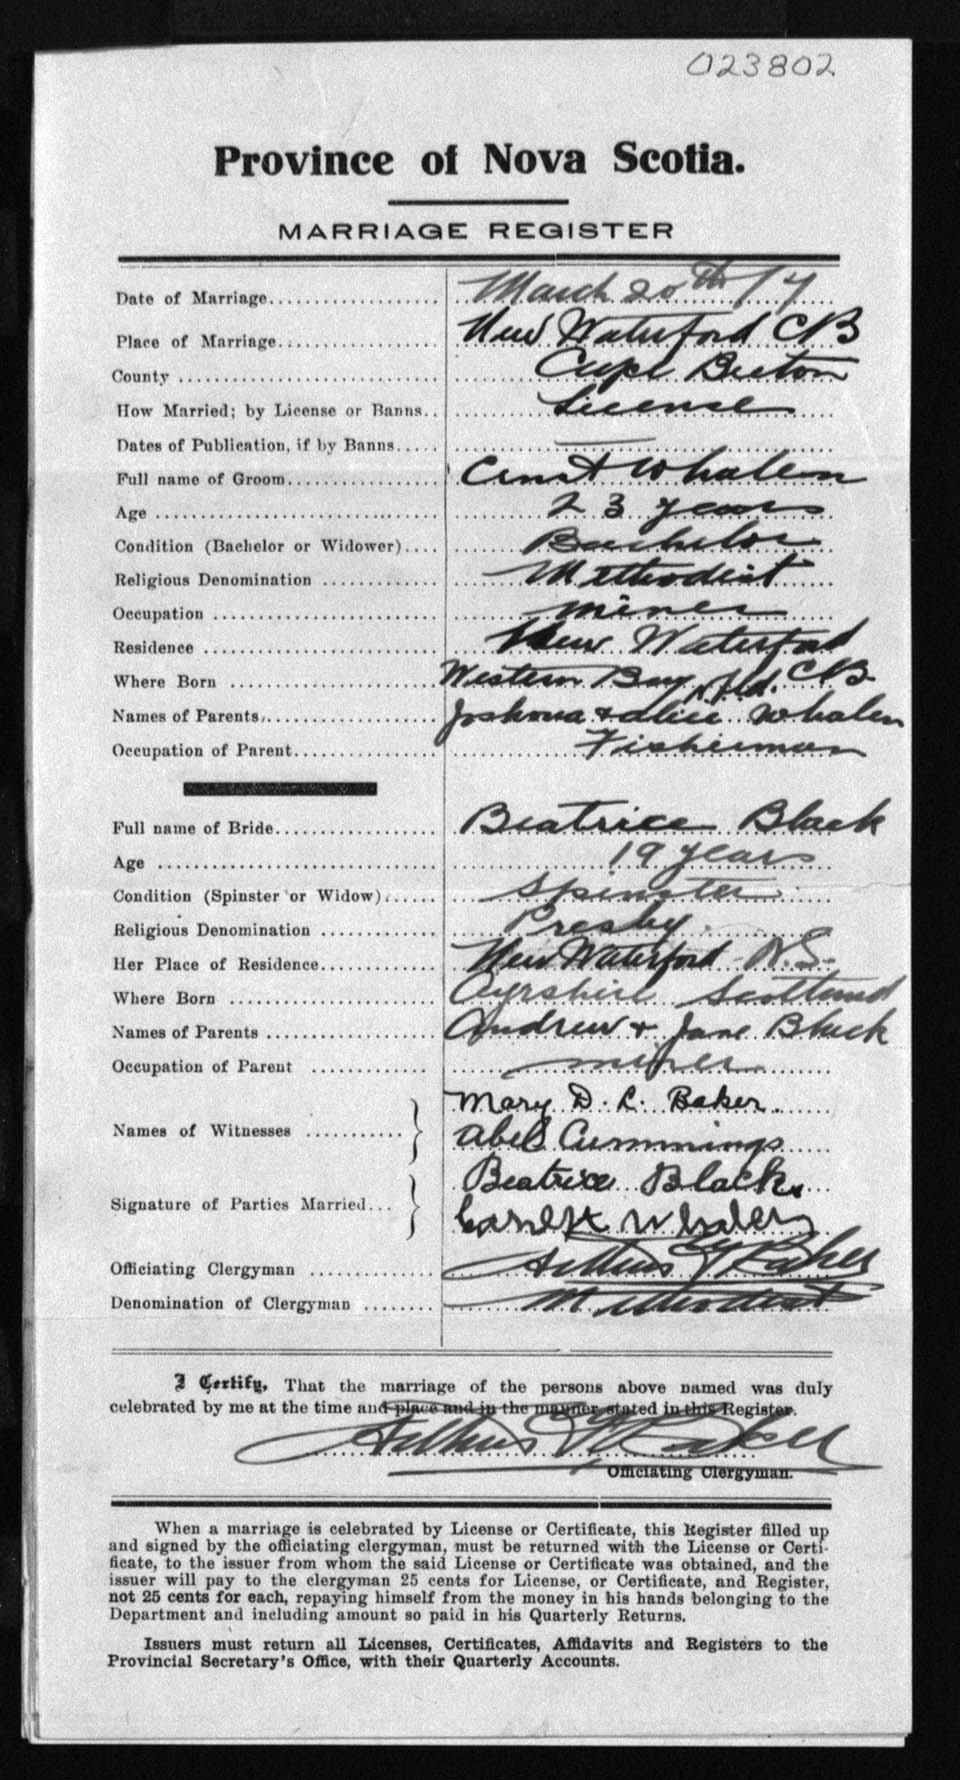 023802
Province of Nova Scotia.
MARRIAGE REGISTER
Date of Marriage March 20th 17
Place of Marriage New Waterford CB
County Cape Breton
How Married; by License or Banns License
Dates of Publication, if by Banns —
Full name of Groom Ernst Whalen
Age 23 years
Condition (Bachelor or Widower) Bachelor
Religious Denomination Methodist
Occupation miner
Residence New Waterford
Where Born Western Bay, Nfld. CB.
Names of Parents, Joshoua + alice Whalen
Occupation of Parent Fisherman
Full name of Bride Beatrice Black
Age 19 years
Condition (Spinster or Widow) Spinster
Religious Denomination Presby.
Her Place of Residence New Waterford - N.S.
Where Born Ayrshire Scotland
Names of Parents Andrew + Jane Black
Occupation of Parent miner
Names of Witnesses Mary D. L. Baker.
Abel Cummings
Signature of Parties Married Beatrice Black
Whalen
Officiating Clergyman Baker
Denomination of Clergyman Methodist
I Certify, That the marriage of the persons above named was duly
celebrated by me at the time and place and in the manner stated in this Register.
Baker
Officiating Clergyman.
When a marriage is celebrated by License or Certificate, this Register filled up
and signed by the officiating clergyman, must be returned with the License or Certi-
ficate, to the issuer from whom the said License or Certificate was obtained, and the
issuer will pay to the clergyman 25 cents for License, or Certificate, and Register,
not 25 cents for each, repaying himself from the money in his hands belonging to the
Department and including amount so paid in his Quarterly Returns.
Issuers must return all Licenses, Certificates, Affidavits and Registers to the
Provincial Secretary's Office, with their Quarterly Accounts.